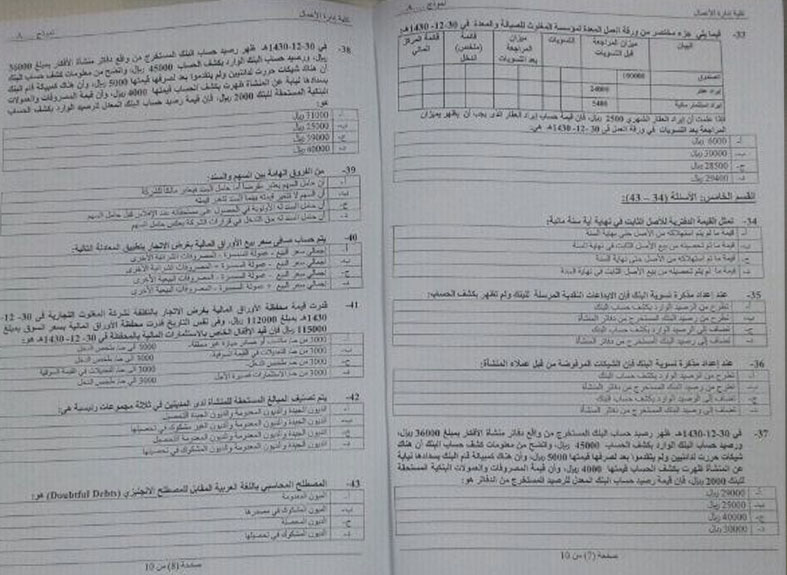 كلية إدارة الأعمال
نموذج ... A
33- فيما يلي جزء مختصر من ورقة العمل المعدة لمؤسسة المغلوث للصيانة والمعدة في 30-12-1430هـ:
البيان
ميزان المراجعة قبل التسويات
التسويات
ميزان المراجعة بعد التسويات
قائمة (ملخص) الدخل
قائمة المركز المالي
الصندوق
إيراد عقار 24000
إيراد استثمار مالية 5400
فإذا علمت أن إيراد العقار الشهري 2500 ريال، فإن قيمة حساب إيراد العقار الذي يجب أن يظهر بميزان
المراجعة بعد التسويات في ورقة العمل في 30-12-1430هـ هي:
أ- 6000 ريال
ب- 30000 ريال
ج- 28500 ريال
د- 29400 ريال
القسم الخامس: الأسئلة (34 – 43):
34- تمثل القيمة الدفترية للأصل الثابت في نهاية أية سنة مالية:
أ- قيمة ما لم يتم استهلاكه من الأصل حتى نهاية السنة
ب- قيمة ما تم تحصيله من بيع الأصل الثابت في نهاية السنة
ج- قيمة ما تم استهلاكه من الأصل حتى نهاية السنة
د- قيمة ما لم يتم تحصيله من بيع الأصل الثابت في نهاية السنة
35- عند إعداد مذكرة تسوية البنك فإن الإيداعات النقدية المرسلة للبنك ولم تظهر بكشف الحساب:
أ- تطرح من الرصيد الوارد بكشف حساب البنك
ب- تطرح من رصيد البنك المستخرج من دفاتر المنشأة
ج- تضاف إلى الرصيد الوارد بكشف حساب البنك
د- تضاف إلى رصيد البنك المستخرج من دفاتر المنشأة
36- عند إعداد مذكرة تسوية البنك فإن الشيكات المرفوضة من قبل عملاء المنشأة:
أ- تطرح من الرصيد الوارد بكشف حساب البنك
ب- تطرح من رصيد البنك المستخرج من دفاتر المنشأة
ج- تضاف إلى الرصيد الوارد بكشف حساب البنك
د- تضاف إلى رصيد البنك المستخرج من دفاتر المنشأة
37- في 30-12-1430هـ ظهر رصيد حساب البنك المستخرج من واقع دفاتر منشأة الأفكار بمبلغ 36000 ريال،
ورصيد حساب البنك الوارد بكشف الحساب 45000 ريال، واتضح من معلومات كشف حساب البنك أن هناك
شيكات حررت لدائنيين ولم يتقدموا بعد لصرفها قيمتها 5000 ريال، وأن هناك كمبيالة قام البنك بسدادها نيابة
عن المنشأة ظهرت بكشف الحساب قيمتها 4000 ريال، وأن قيمة المصروفات والعمولات البنكية المستحقة
للبنك 2000 ريال، فإن قيمة رصيد حساب البنك المعدل للرصيد المستخرج من الدفاتر هو:
أ- 29000 ريال
ب- 25000 ريال
ج- 40000 ريال
د- 30000 ريال
صفحة (7) من 10
كلية إدارة الأعمال
نموذج ... A
38- في 30-12-1430هـ ظهر رصيد حساب البنك المستخرج من واقع دفاتر منشأة الأفكار بمبلغ 36000
ريال، ورصيد حساب البنك الوارد بكشف الحساب 45000 ريال، واتضح من معلومات كشف حساب البنك
أن هناك شيكات حررت لدائنيين ولم يتقدموا بعد لصرفها قيمتها 5000 ريال، وأن هناك كمبيالة قام البنك
بسدادها نيابة عن المنشأة ظهرت بكشف الحساب قيمتها 4000 ريال، وأن قيمة المصروفات والعمولات
البنكية المستحقة للبنك 2000 ريال، فإن قيمة رصيد حساب البنك المعدل للرصيد الوارد بكشف الحساب
هو:
أ- 31000 ريال
ب- 25000 ريال
ج- 39000 ريال
د- 40000 ريال
39- من الفروق الهامة بين السهم والسند:
أ- أن حامل السهم يعتبر مقرضا أما حامل السند فيعتبر مالكا للشركة
ب- أن السهم لا تتغير قيمته بينما السند تتغير قيمته
ج- أن حامل السند له الأولوية في الحصول على مستحقاته عند الإفلاس قبل حامل السهم
د- أن حامل السند له حق التدخل في قرارات الشركة بعكس حامل السهم
40- يتم حساب صافي سعر بيع الأوراق المالية بغرض الاتجار بتطبيق المعادلة التالية:
أ- إجمالي سعر البيع - عمولة السمسرة - المصروفات الشرائية الأخرى
ب- إجمالي سعر البيع - عمولة السمسرة + المصروفات الشرائية الأخرى
ج- إجمالي سعر البيع - عمولة السمسرة - المصروفات البيعية الأخرى
د- إجمالي سعر البيع - عمولة السمسرة + المصروفات البيعية الأخرى
41- قدرت قيمة محفظة الأوراق المالية بغرض الاتجار بالتكلفة لشركة المغلوث التجارية في 30-12-
1430هـ بمبلغ 112000 ريال، وفي نفس التاريخ قدرت محفظة الأوراق المالية بسعر السوق بمبلغ
115000 ريال، فإن قيد الإقفال الخاص بالاستثمارات المالية بالمحفظة في 30-12-1430هـ هو:
أ- 3000 من حـ/ مكاسب أو خسائر حيازة غير محققة 3000 إلى حـ/ ملخص الدخل
ب- 3000 من حـ/ التعديلات في القيمة السوقية 3000 إلى حـ/ ملخص الدخل
ج- 3000 من حـ/ ملخص الدخل 3000 إلى حـ/ التعديلات في القيمة السوقية
د- 3000 من حـ/ الاستثمارات قصيرة الأجل 3000 إلى حـ/ ملخص الدخل
42- يتم تصنيف المبالغ المستحقة للمنشأة لدى المدينين في ثلاثة مجموعات رئيسية هي:
أ- الديون الجيدة والديون المعدومة والديون الجيدة التحصيل
ب- الديون الجيدة والديون المعدومة والديون الغير مشكوك في تحصيلها
ج- الديون الجيدة والديون المعدومة والديون المعدومة التحصيل
د- الديون الجيدة والديون المعدومة والديون المشكوك في تحصيلها
43- المصطلح المحاسبي باللغة العربية المقابل للمصطلح الإنجليزي (Doubtful Debts) هو:
أ- الديون المعدومة
ب- الديون المشكوك في مصدرها
ج- الديون المحصلة
د- الديون المشكوك في تحصيلها
صفحة (8) من 10